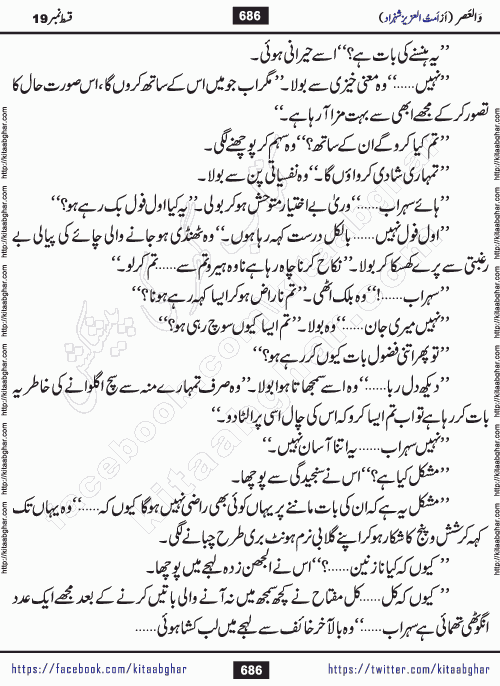 والعصر (از امت العزیز شہزاد)
686
قسط نمبر 19
’’یہ ہنسنے کی بات ہے؟‘‘ اسے حیرانی ہوئی۔
’’نہیں......‘‘ وہ معنی خیزی سے بولا۔ ’’مگر اب جو میں اس کے ساتھ کروں گا، اس صورت حال کا
تصور کر کے مجھے ابھی سے بہت مزا آ رہا ہے۔‘‘
’’تم کیا کرو گے ان کے ساتھ؟‘‘ وہ سہم کر پوچھنے لگی۔
’’تمہاری شادی کرواؤں گا۔‘‘ وہ نفسیاتی پن سے بولا۔
’’ہائے سہراب......‘‘ وری بے اختیار متوحش ہو کر بولی۔ ’’یہ کیا اول فول بک رہے ہو؟‘‘
’’اول فول نہیں...... بالکل درست کہہ رہا ہوں۔‘‘ وہ ٹھنڈی ہو جانے والی چائے کی پیالی بے
رغبتی سے پرے کھسکا کر بولا۔ ’’نکاح کرنا چاہ رہا ہے نا وہ ہیرو تم سے...... تم کر لو۔‘‘
’’سہراب......!‘‘ وہ بلک اٹھی۔ ’’تم ناراض ہو کر ایسا کہہ رہے ہو نا؟‘‘
’’نہیں میری جان......‘‘ وہ بولا۔ ’’تم ایسا کیوں سوچ رہی ہو؟‘‘
’’تو پھر اتنی فضول بات کیوں کر رہے ہو؟‘‘
’’دیکھ دل ربا......‘‘ وہ اسے سمجھاتا ہوا بولا۔ ’’وہ صرف تمہارے منہ سے سچ اگلوانے کی خاطر یہ
بات کر رہا ہے تو اب تم ایسا کرو کہ اس کی چال اسی پر الٹا دو۔‘‘
’’نہیں سہراب...... یہ اتنا آسان نہیں۔‘‘
’’مشکل کیا ہے؟‘‘ اس نے سنجیدگی سے پوچھا۔
’’مشکل یہ ہے کہ ان کی بات ماننے پر یہاں کوئی بھی راضی نہیں ہو گا کیوں کہ......‘‘ وہ یہاں تک
کہہ کر شش و پنج کا شکار ہو کر اپنے گلابی نرم ہونٹ بری طرح چبانے لگی۔
’’کیوں کہ کیا نازنین......؟‘‘ اس نے الجھن زدہ لہجے میں پوچھا۔
’’کیوں کہ کل...... کل مفتاح نے کچھ سمجھ میں نہ آنے والی باتیں کرنے کے بعد مجھے ایک عدد
انگوٹھی تھمائی ہے سہراب......‘‘ وہ بالآخر خائف سے لہجے میں لب کشا ہوئی......
https://facebook.com/kitaabghar
686
https://twitter.com/kitaabghar
http://kitaabghar.com
http://kitaabghar.com
http://kitaabghar.com
http://kitaabghar.com
http://kitaabghar.com
http://kitaabghar.com
http://kitaabghar.com
http://kitaabghar.com
http://kitaabghar.com
http://kitaabghar.com
http://kitaabghar.com
http://kitaabghar.com